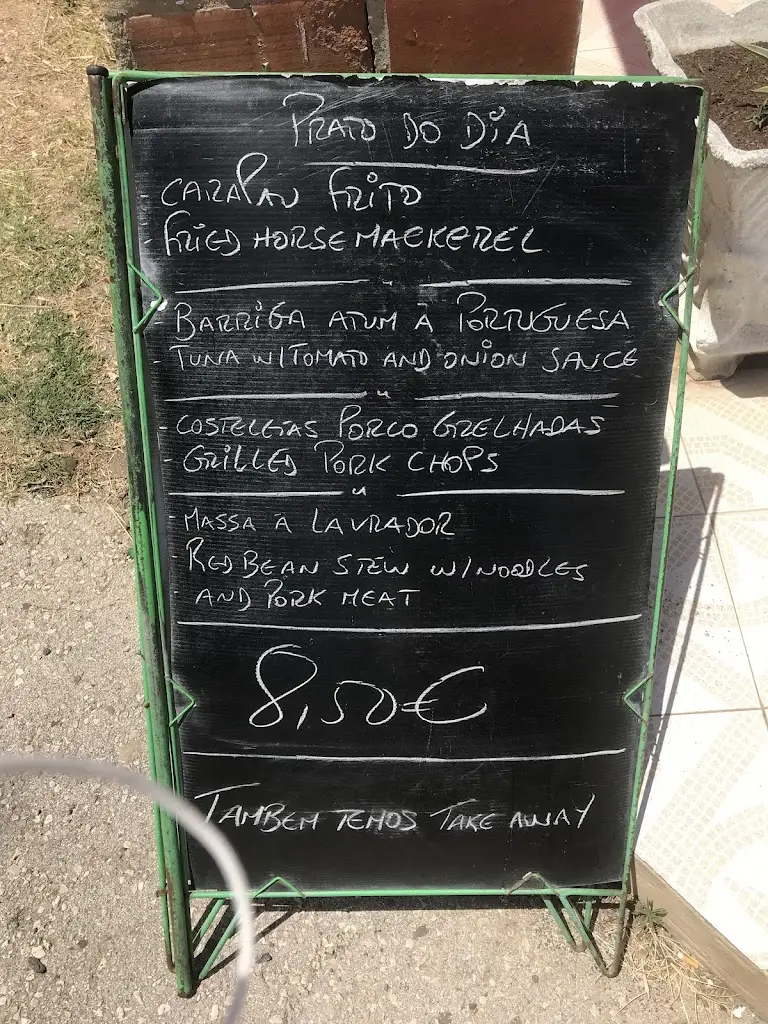 PRATO DO DIA
- CARAPAU FRITO
- FRIED HORSE MACKEREL
"
- BARRIGA ATUM À PORTUGUESA
- TUNA W/TOMATO AND ONION SAUCE
"
- COSTELETAS PORCO GRELHADAS
- GRILLED PORK CHOPS
"
- MASSA À LAVRADOR
- RED BEAN STEW W/NOODLES
AND PORK MEAT
8,50€
TAMBEM TEMOS TAKE AWAY